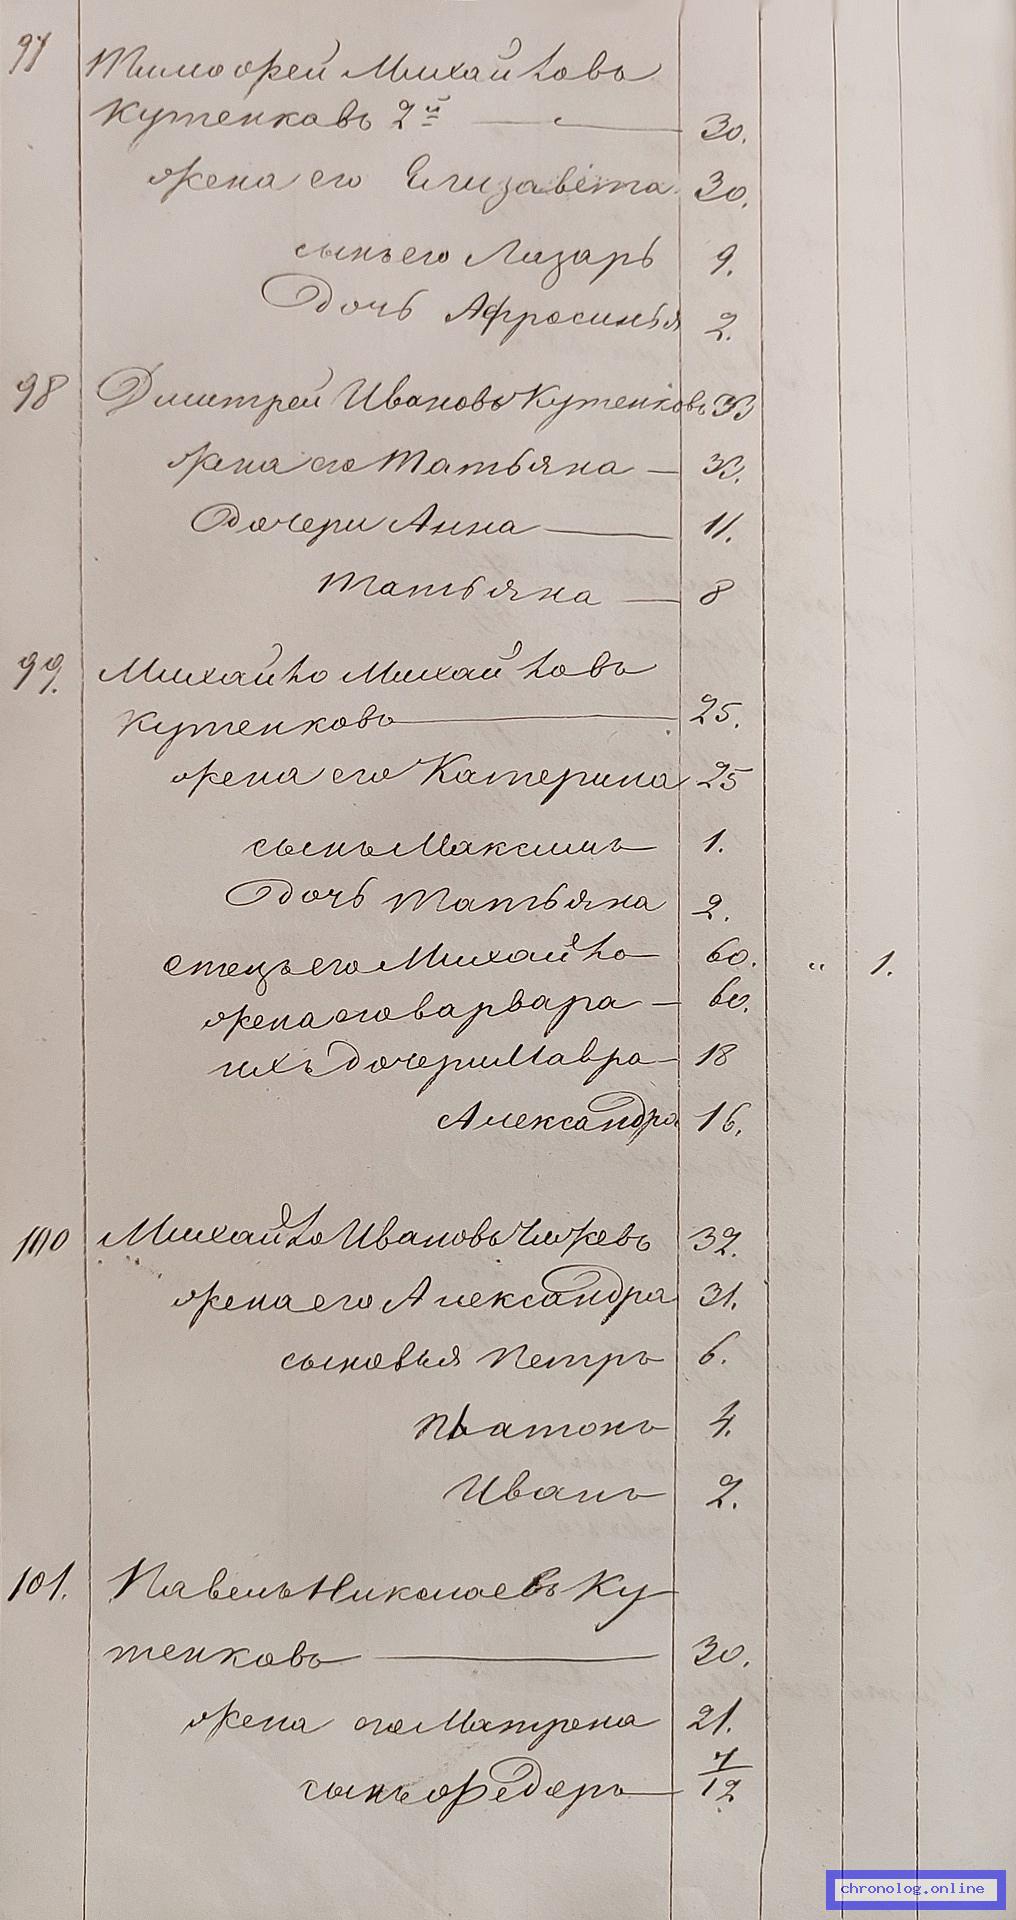 97 Тимофей Михайловъ
Кутенковъ 2й 30.
жена его Елизавета 30.
сынъ его Лазарь 9.
дочь Афросинья 2.
98 Дмитрей Ивановъ Кутенковъ 33
жена его Татьяна 33.
дочери Анна 11.
Татьяна 8
99. Михайло Михайловъ
Кутенковъ 25.
жена его Катерина 25
сынъ Максимъ 1.
дочь Татьяна 2.
отецъ его Михайло 60. „ 1.
жена его варвара 60.
ихъ дочери Мавра 18
Александра 16.
100 Михайло Ивановъ 32.
жена его Александра 31.
сыновья Петръ 6.
Платонъ 4.
Иванъ 2.
101. Павелъ Николаевъ Ку
тенковъ 30.
жена его Матрена 21.
сынъ Федоръ 7/12
chronolog.online